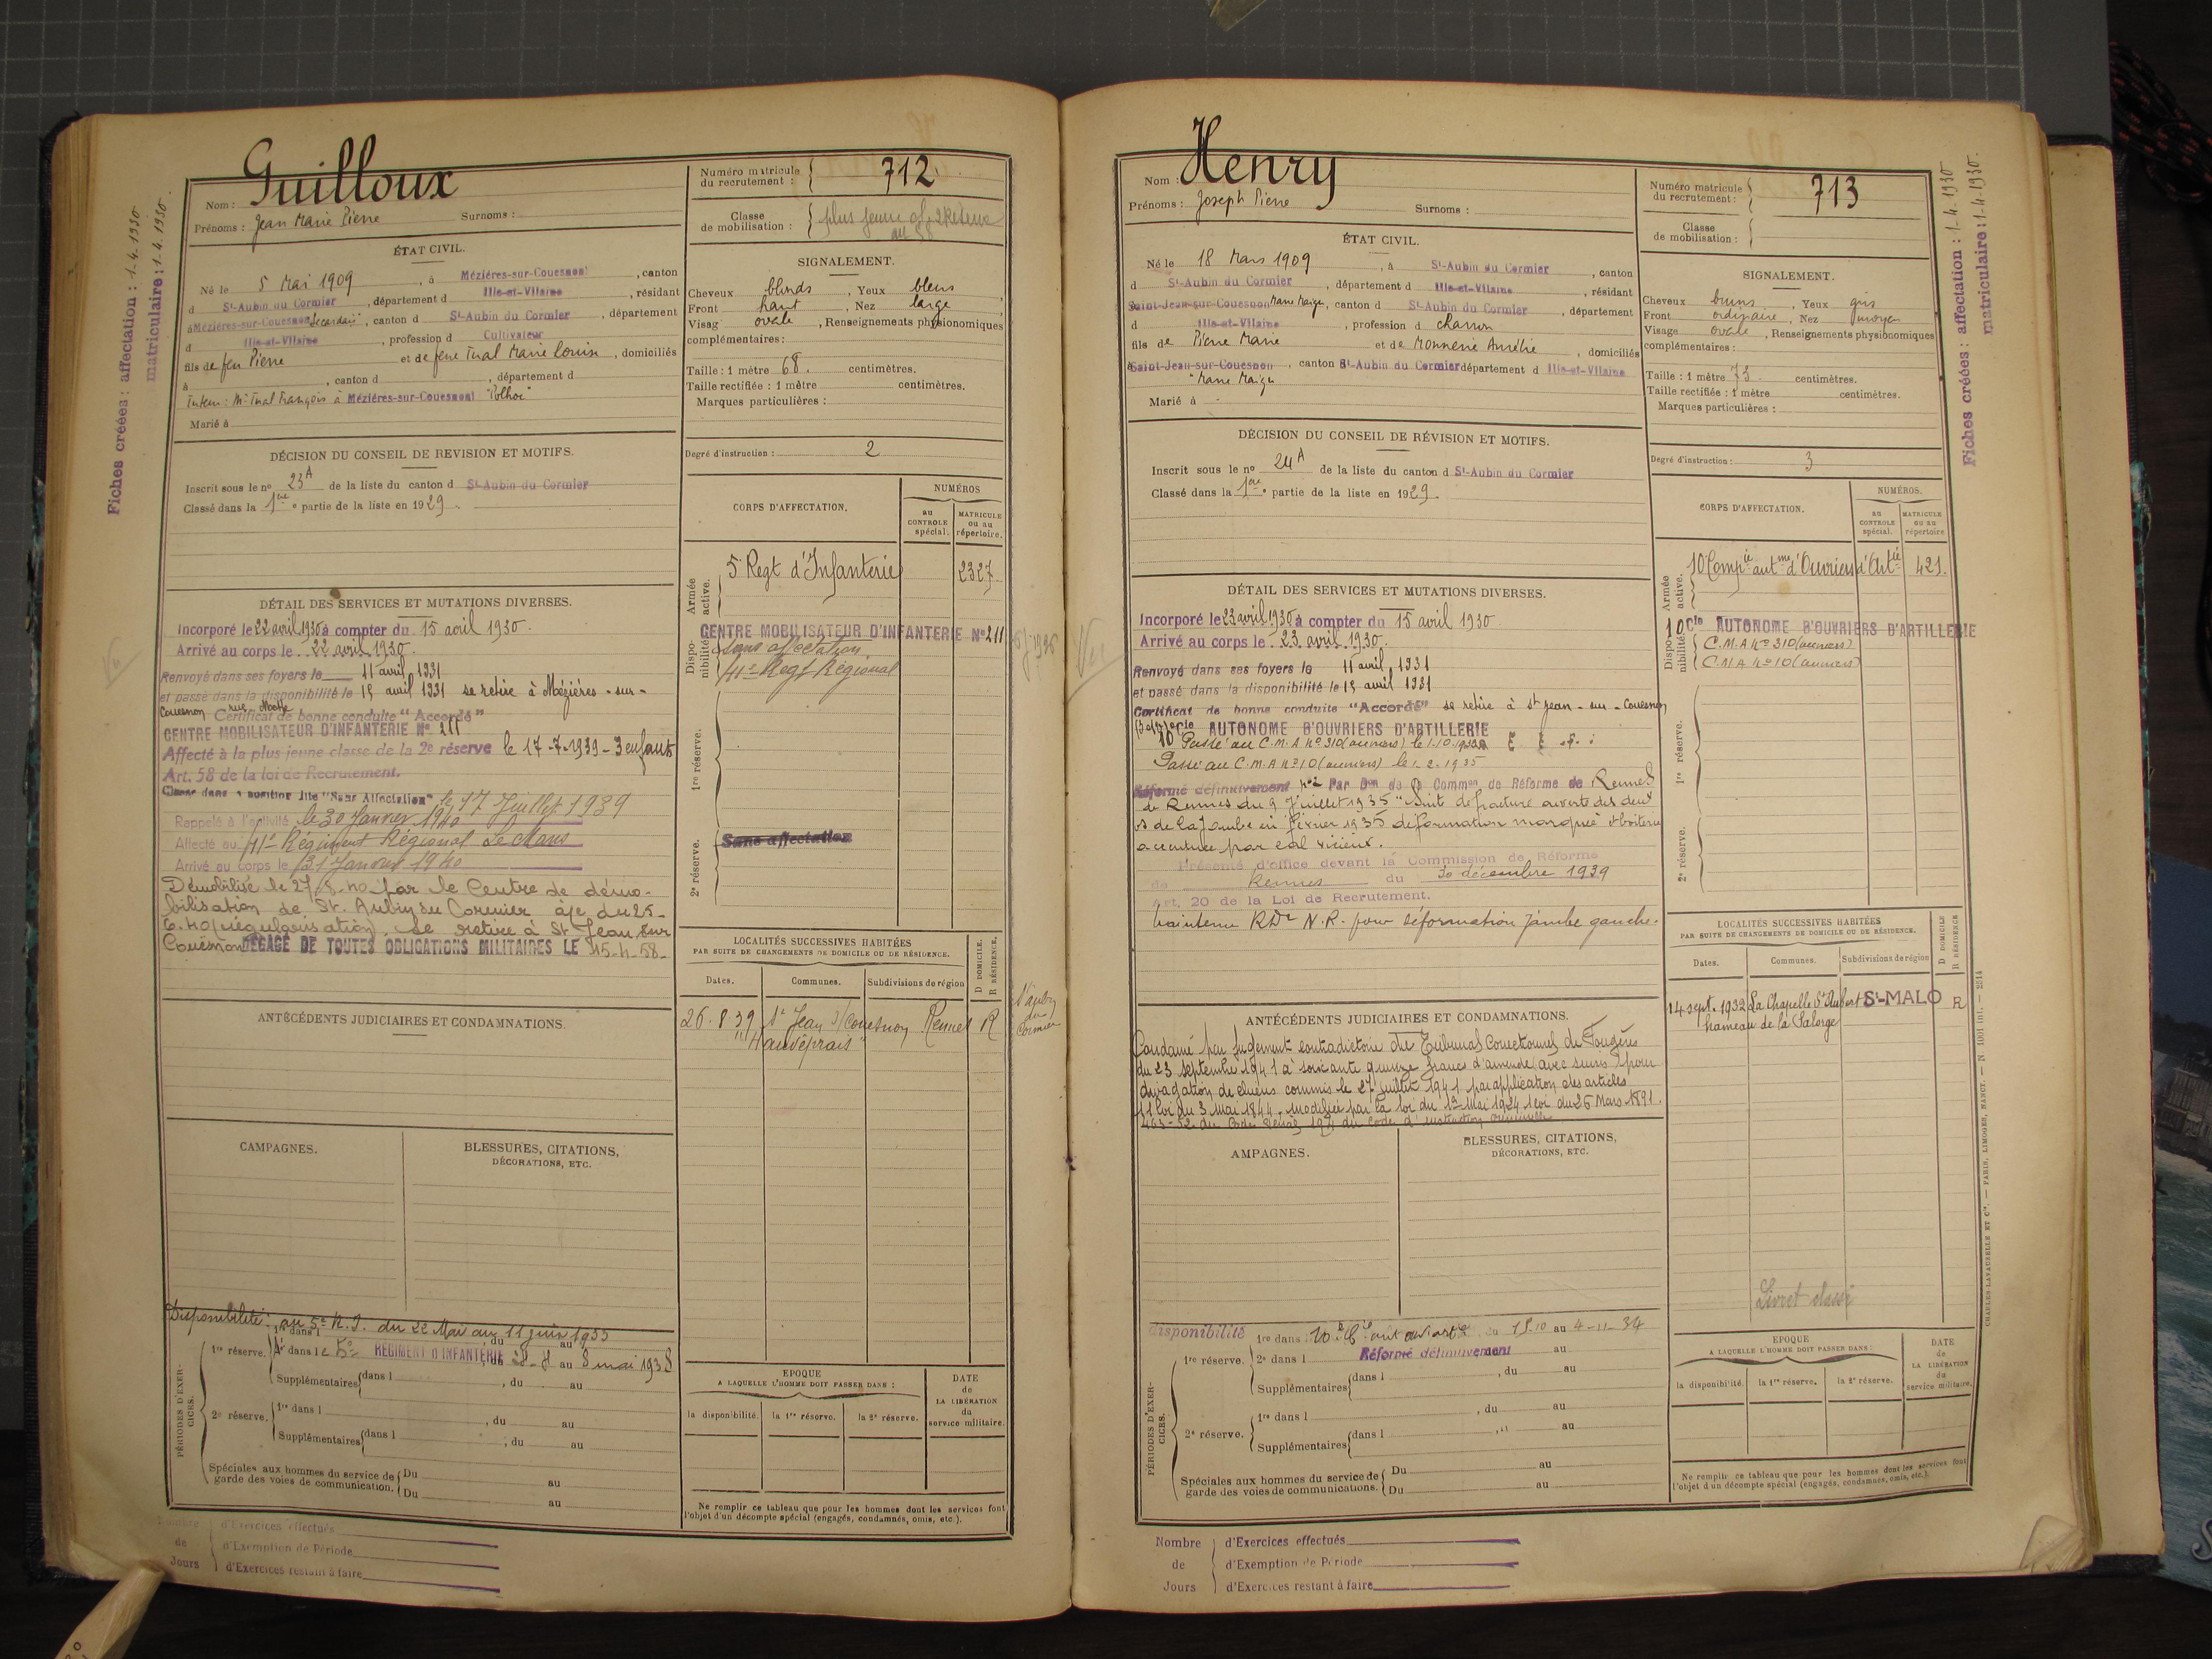 Fiches créées : affectation : 1-4-1930
matriculaire : 1-4-1930.
Nom : Guilloux
Prénoms : Jean Marie Pierre Surnoms :
Numéro matricule du recrutement : 712
Classe de mobilisation : plus jeune cl. 2e Réserve
art 58
ÉTAT CIVIL.
Né le 5 Mai 1909, à Mézières-sur-Couesnon, canton
d St-Aubin du Cormier, département d Ille-et-Vilaine, résidant
à Mézières-sur-Couesnon, canton d St-Aubin du Cormier, département
d Ille-et-Vilaine, profession d Cultivateur
fils de feu Pierre et de feue Tual Marie Louise, domiciliés
à , canton d , département d
Tuteur : Mr Tual François à Mézières-sur-Couesnon
Marié à
SIGNALEMENT.
Cheveux blonds, Yeux bleus
Front haut, Nez large,
Visage ovale, Renseignements physionomiques
complémentaires :
Taille : 1 mètre 68. centimètres.
Taille rectifiée : 1 mètre centimètres.
Marques particulières :
Degré d'instruction : 2
DÉCISION DU CONSEIL DE REVISION ET MOTIFS.
Inscrit sous le no 23A de la liste du canton d St-Aubin du Cormier
Classé dans la 1ère partie de la liste en 1929.
CORPS D'AFFECTATION.
NUMÉROS
au CONTROLE spécial.
MATRICULE ou au répertoire.
Armée active.
5e Regt d'Infanterie 2327
Disponibilité
CENTRE MOBILISATEUR D'INFANTERIE No 211
Sans affectation
41e Regt Régional
1re réserve.
2e réserve.
Sans affectation
DÉTAIL DES SERVICES ET MUTATIONS DIVERSES.
Incorporé le 22 avril 1930 à compter du 15 avril 1930.
Arrivé au corps le 22 avril 1930.
Renvoyé dans ses foyers le 11 avril 1931
et passé dans la disponibilité le 15 avril 1931 se retire à Mézières-sur-
Couesnon
Certificat de bonne conduite "Accordé"
CENTRE MOBILISATEUR D'INFANTERIE No 211
Affecté à la plus jeune classe de la 2e réserve le 17-7-1939 - 3 enfants
Art. 58 de la loi de Recrutement.
Classé dans la position dite "Sans Affectation" le 17 Juillet 1939
Rappelé à l'activité le 30 Janvier 1940
Affecté au 41e Régiment Régional Le Mans
Arrivé au corps le 31 Janvier 1940
Démobilisé le 27-8-40 par le Centre de démo-
bilisation de St. Aubin du Cormier à/c du 25-
6-40 (régularisation). Se retire à St Jean sur
Couesnon DÉGAGÉ DE TOUTES OBLIGATIONS MILITAIRES LE 15-4-58-
LOCALITÉS SUCCESSIVES HABITÉES
PAR SUITE DE CHANGEMENTS DE DOMICILE OU DE RÉSIDENCE.
Dates. Communes. Subdivisions de région D DOMICILE. R RÉSIDENCE.
26.8.39 St Jean s/Couesnon Rennes R
St Aubin du Cormier
ANTÉCÉDENTS JUDICIAIRES ET CONDAMNATIONS.
CAMPAGNES.
BLESSURES, CITATIONS,
DÉCORATIONS, ETC.
PÉRIODES D'EXERCICES.
Disponibilité : au 5e R.I. du 22 Mai au 11 juin 1933
1re réserve. 1re dans l , du au
2e dans le 5e RÉGIMENT D'INFANTERIE au 8 mai 1938
Supplémentaires dans l , du au
2e réserve. 1re dans l , du au
Supplémentaires dans l , du au
Spéciales aux hommes du service de garde des voies de communication. Du au
Du au
EPOQUE
A LAQUELLE L'HOMME DOIT PASSER DANS :
la disponibilité. la 1re réserve. la 2e réserve.
DATE de LA LIBÉRATION du service militaire.
Ne remplir ce tableau que pour les hommes dont les services font
l'objet d'un décompte spécial (engagés, condamnés, omis, etc.).
Nombre de Jours
d'Exercices effectués
d'Exemption de Période
d'Exercices restant à faire
Nom : Henry
Prénoms : Joseph Pierre Surnoms :
Numéro matricule du recrutement : 713
Classe de mobilisation :
Fiches créées : affectation : 1-4-1930
matriculaire : 1-4-1930.
ÉTAT CIVIL.
Né le 18 Mars 1909, à St-Aubin du Cormier, canton
d St-Aubin du Cormier, département d Ille-et-Vilaine, résidant
Saint-Jean-sur-Couesnon, canton d St-Aubin du Cormier, département
d Ille-et-Vilaine, profession d charron
fils de Pierre Marie et de Monnerie Aurélie, domiciliés
à Saint-Jean-sur-Couesnon, canton St-Aubin du Cormier département d Ille-et-Vilaine
Marié à
SIGNALEMENT.
Cheveux bruns, Yeux gris
Front ordinaire, Nez moyen
Visage ovale, Renseignements physionomiques
complémentaires :
Taille : 1 mètre 73 centimètres.
Taille rectifiée : 1 mètre centimètres.
Marques particulières :
Degré d'instruction : 3
DÉCISION DU CONSEIL DE RÉVISION ET MOTIFS.
Inscrit sous le no 24A de la liste du canton d St-Aubin du Cormier
Classé dans la 1ère partie de la liste en 1929.
CORPS D'AFFECTATION.
NUMÉROS.
au CONTROLE spécial.
MATRICULE ou au répertoire
Armée active.
10 Compie autme d'Ouvriers d'Artie 421.
Disponibilité
10 Cie AUTONOME D'OUVRIERS D'ARTILLERIE
C.M.A no 310 (ouvriers)
C.M.A no 10 (ouvriers)
1re réserve.
2e réserve.
DÉTAIL DES SERVICES ET MUTATIONS DIVERSES.
Incorporé le 23 avril 1930 à compter du 15 avril 1930
Arrivé au corps le 23 avril 1930.
Renvoyé dans ses foyers le 11 avril 1931
et passé dans la disponibilité le 15 avril 1931
Certificat de bonne conduite "Accordé" se retire à St Jean-sur-Couesnon
10 Cie AUTONOME D'OUVRIERS D'ARTILLERIE
Passé au C.M.A no 310 (ouvriers) le 1.10.1932
Passé au C.M.A no 10 (ouvriers) le 1.2.1935
Réformé définitivement no 2 Par Don de la Common de Réforme de Rennes
de Rennes du 9 Juillet 1935 "Suite de fracture ouverte des deux
os de la jambe en février 1935 déformation marquée et boiterie
accentuée par cal vicieux.
Présenté d'office devant la Commission de Réforme
de Rennes du 30 décembre 1939
Art. 20 de la Loi de Recrutement.
Maintenu RDf N.R. pour déformation jambe gauche.
LOCALITÉS SUCCESSIVES HABITÉES
PAR SUITE DE CHANGEMENTS DE DOMICILE OU DE RÉSIDENCE.
Dates. Communes. Subdivisions de région D DOMICILE R RÉSIDENCE
14 sept. 1932 La Chapelle St Aubert St-MALO R
hameau de la Salorge
ANTÉCÉDENTS JUDICIAIRES ET CONDAMNATIONS.
Condamné par jugement contradictoire du Tribunal Correctionnel de Fougères
du 23 septembre 1941 à soixante quinze francs d'amende (avec sursis) pour
divagation de chiens commis le 27 juillet 1941 par application des articles
11 loi du 3 Mai 1844, modifiée par la loi du 1er Mai 1924, loi du 26 Mars 1891.
463-52 du Code Pénal 194 du code d'instruction criminelle
AMPAGNES.
BLESSURES, CITATIONS,
DÉCORATIONS, ETC.
Livret classé
PÉRIODES D'EXERCICES.
disponibilité 1re dans 10e Cie aut ouv artie du 15-10 au 4-11-34
1re réserve. 2e dans l Réformé définitivement au
Supplémentaires dans l , du au
2e réserve. 1re dans l , du au
Supplémentaires dans l au
Spéciales aux hommes du service de garde des voies de communications. Du au
Du au
EPOQUE
A LAQUELLE L'HOMME DOIT PASSER DANS :
la disponibilité. la 1re réserve. la 2e réserve.
DATE de LA LIBÉRATION du service militaire.
Ne remplir ce tableau que pour les hommes dont les services font
l'objet d'un décompte spécial (engagés, condamnés, omis, etc.).
CHARLES-LAVAUZELLE ET Cie. — PARIS, LIMOGES, NANCY.
Nombre de Jours
d'Exercices effectués
d'Exemption de Période
d'Exercices restant à faire